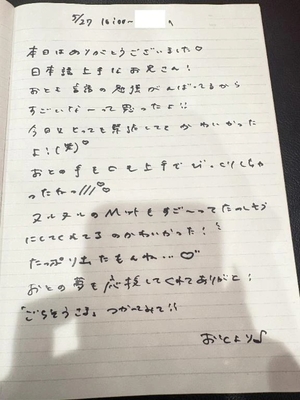 5/27 16:00~
本日はありがとうございました♡
日本語上手なお兄さん!
おとも言語の勉強がんばってるから
すごいな~って思ったよ!!
今日はとっても緊張してて かわいかった
よ!(笑)♡
おとの手も口も上手でびっくりしちゃ
ったねっ///♡
ヌルヌルのMットもすご~ってたのしそう
にしてくれてるのかわいかった!
たっぷり出たもんね...♡
おとの夢も応援してくれてありがと!
「ごちそうさま」つかってみて!!
おとより♪